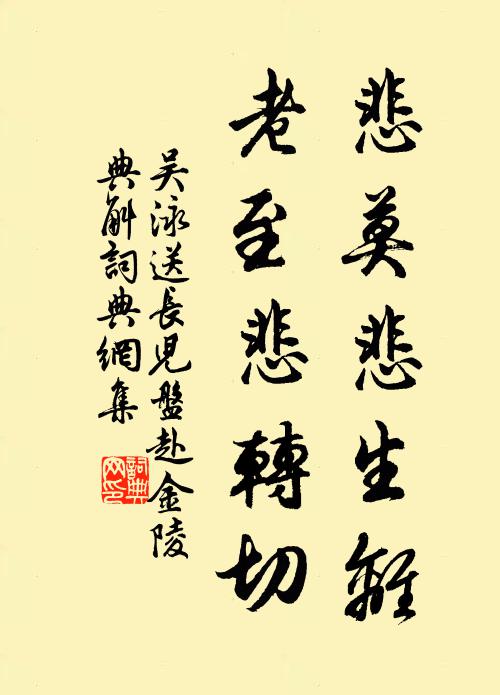 悲莫悲生離
老至悲轉切
吴泳送長兒盤赴金陵
典斛詞典網集
詞典